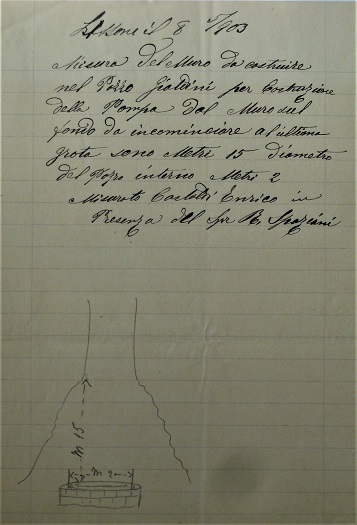 il 8 /903
Misura del Muro da costruire
nel Pozzo Giattini per Costruzione
della Pompa dal Muro sul
fondo da incominciare a l'ultima
grota sono Metri 15 Diametro
del Pozo interno Metri 2
Misurato Enrico in
Presenza del Spaziani
M 15
M 2